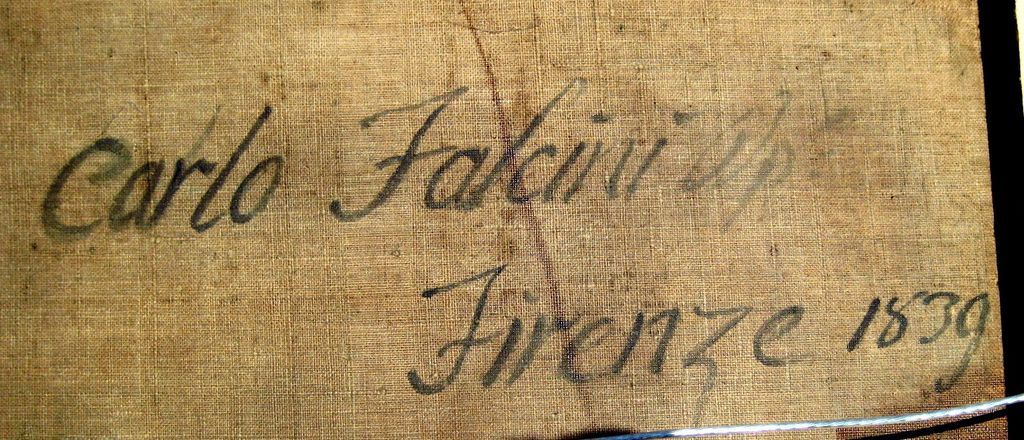 Carlo Falcini
Firenze 1839